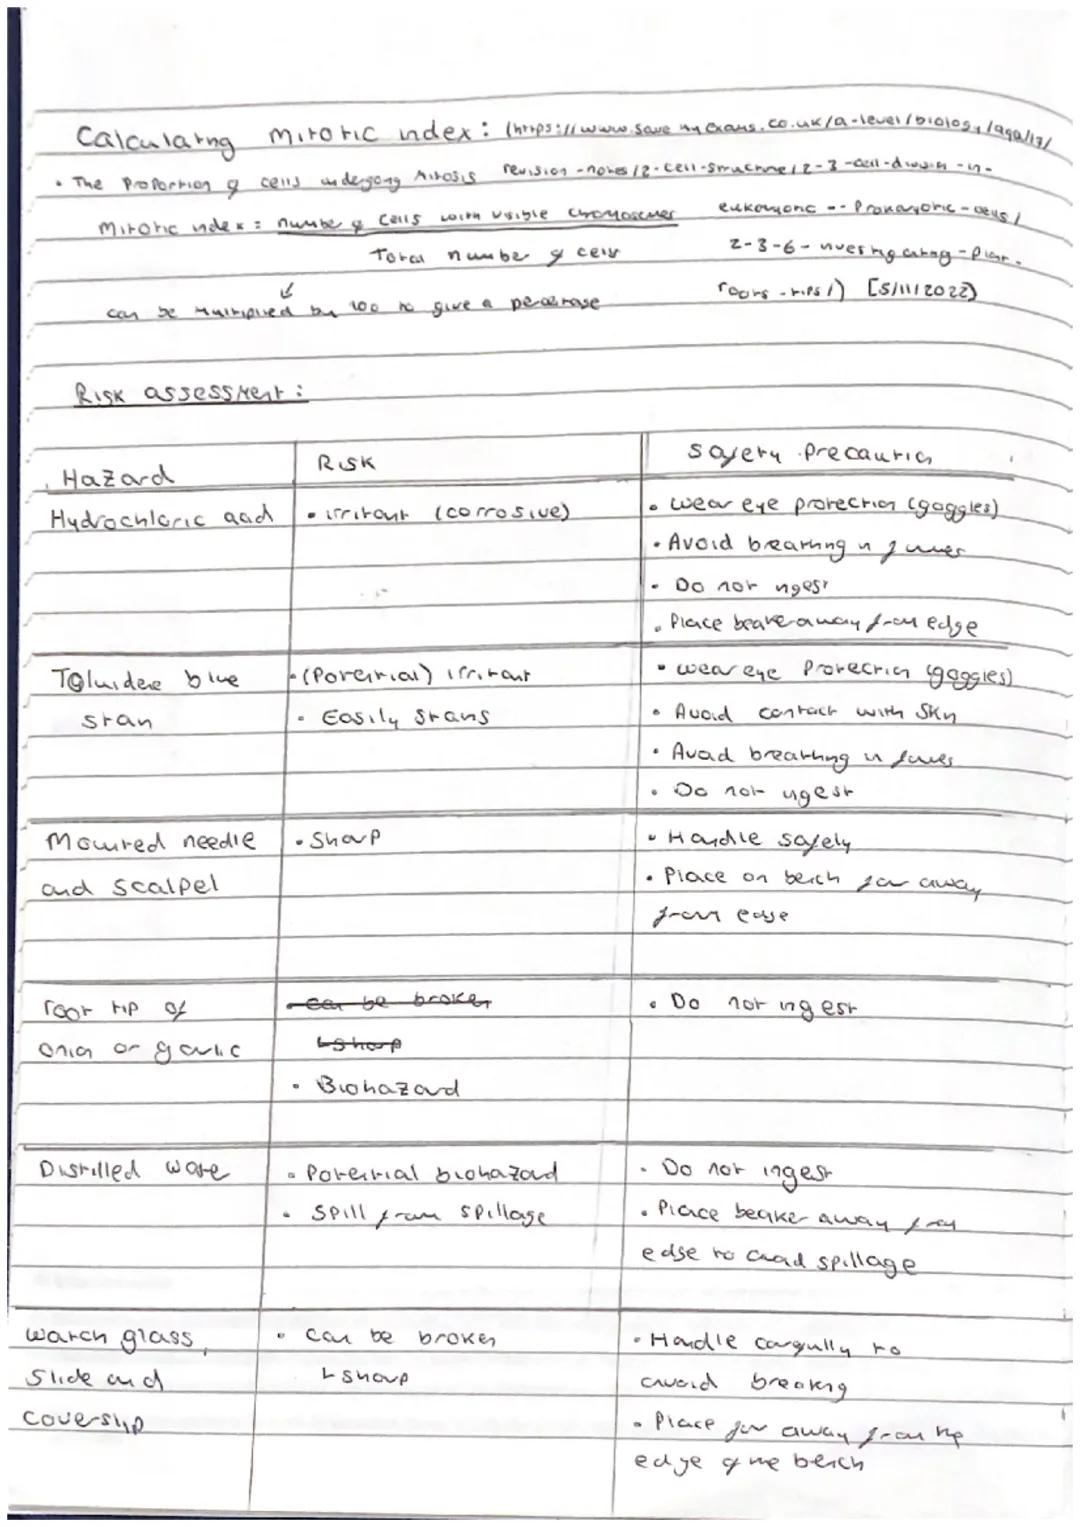 Calculating mitotic index: (https://www.savemyexams.co.uk/a-level/biology/aqa/17/
revision-notes/2-cell-structure/2-3-cell-division-in-
eukaryotic--prokaryotic-cells/
2-3-6-investigating-plant-
roots-tips/) [5/11/2022]
• The proportion of cells undergoing mitosis
Mitotic index = number of cells with visible chromosomes
Total number of cells
can be multiplied by 100 to give a percentage
Risk assessment:
Hazard
Risk
Safety precaution
Hydrochloric acid
• irritant (corrosive)
• wear eye protection (goggles)
• Avoid breathing in fumes
• Do not ingest
• Place beaker away from edge
Toluidene blue
stain
• (Potential) irritant
• Easily stains
• wear eye protection (goggles)
• Avoid contact with skin
• Avoid breathing in fumes
• Do not ingest
Mounted needle
and scalpel
• Sharp
• Handle safely
• Place on bench far away
from edge
root tip of
onion or garlic
can be broken
↳ sharp
• Biohazard
• Do not ingest
Distilled water
• Potential biohazard
• Spill from spillage
• Do not ingest
• Place beaker away from
edge to avoid spillage
watch glass,
slide and
coverslip
• can be broken
↳ sharp
• Handle carefully to
avoid breaking
• Place far away from the
edge of the bench